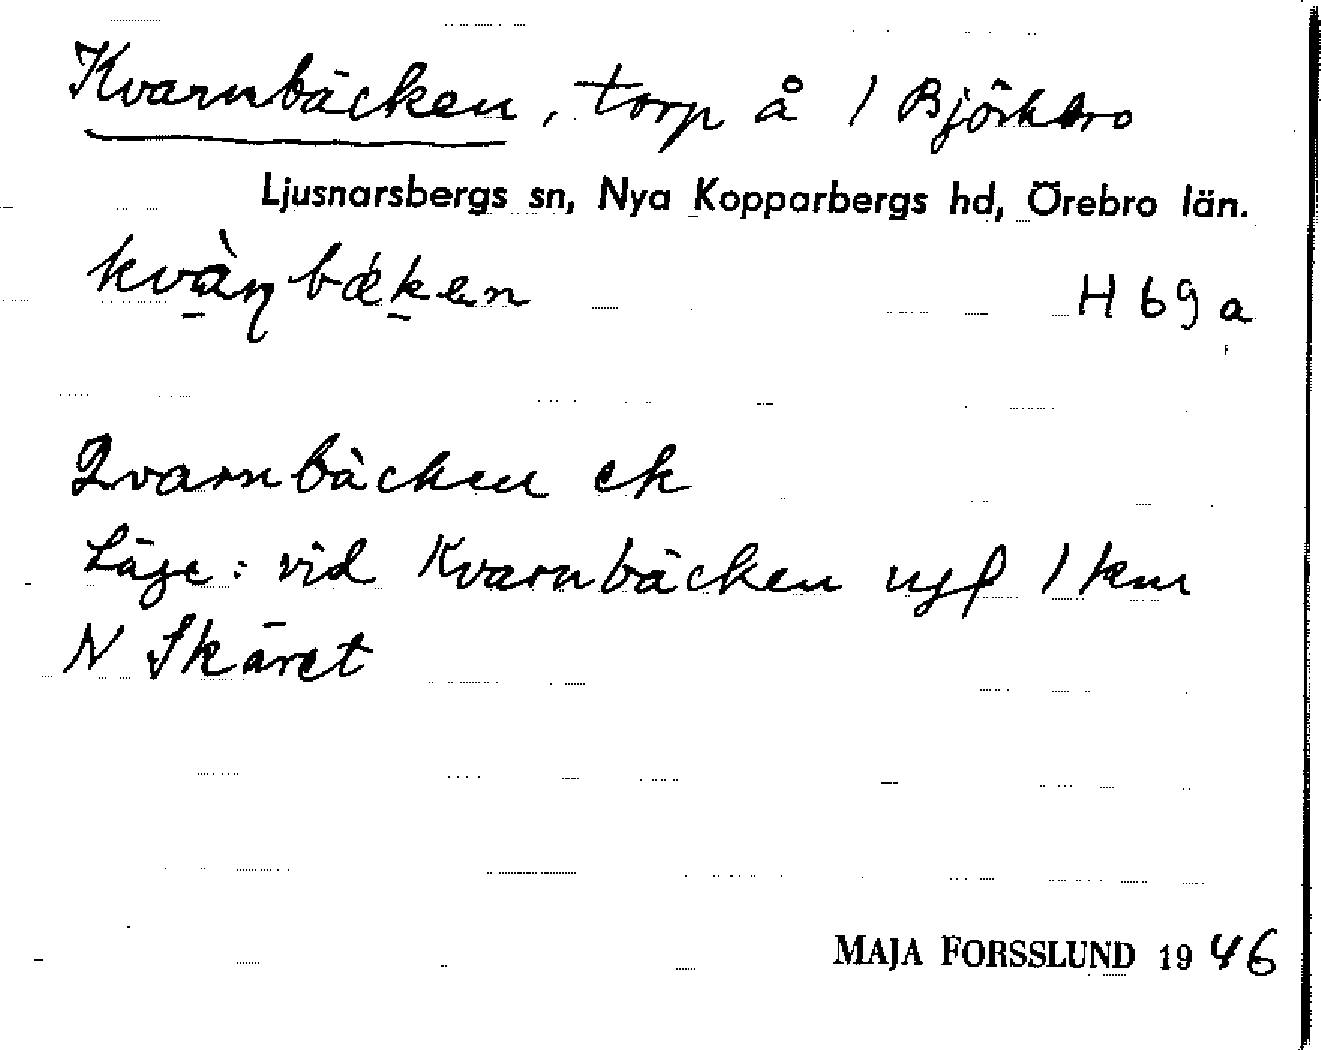 Kvarnbäcken, torp å 1 Björkbro
Ljusnarsbergs sn, Nya Kopparbergs hd, Örebro län.
kvàṇbǽken H 69 a
Qvarnbäcken ek
Läge: vid Kvarnbäcken ugf 1 km
N Skäret
MAJA FORSSLUND 1946